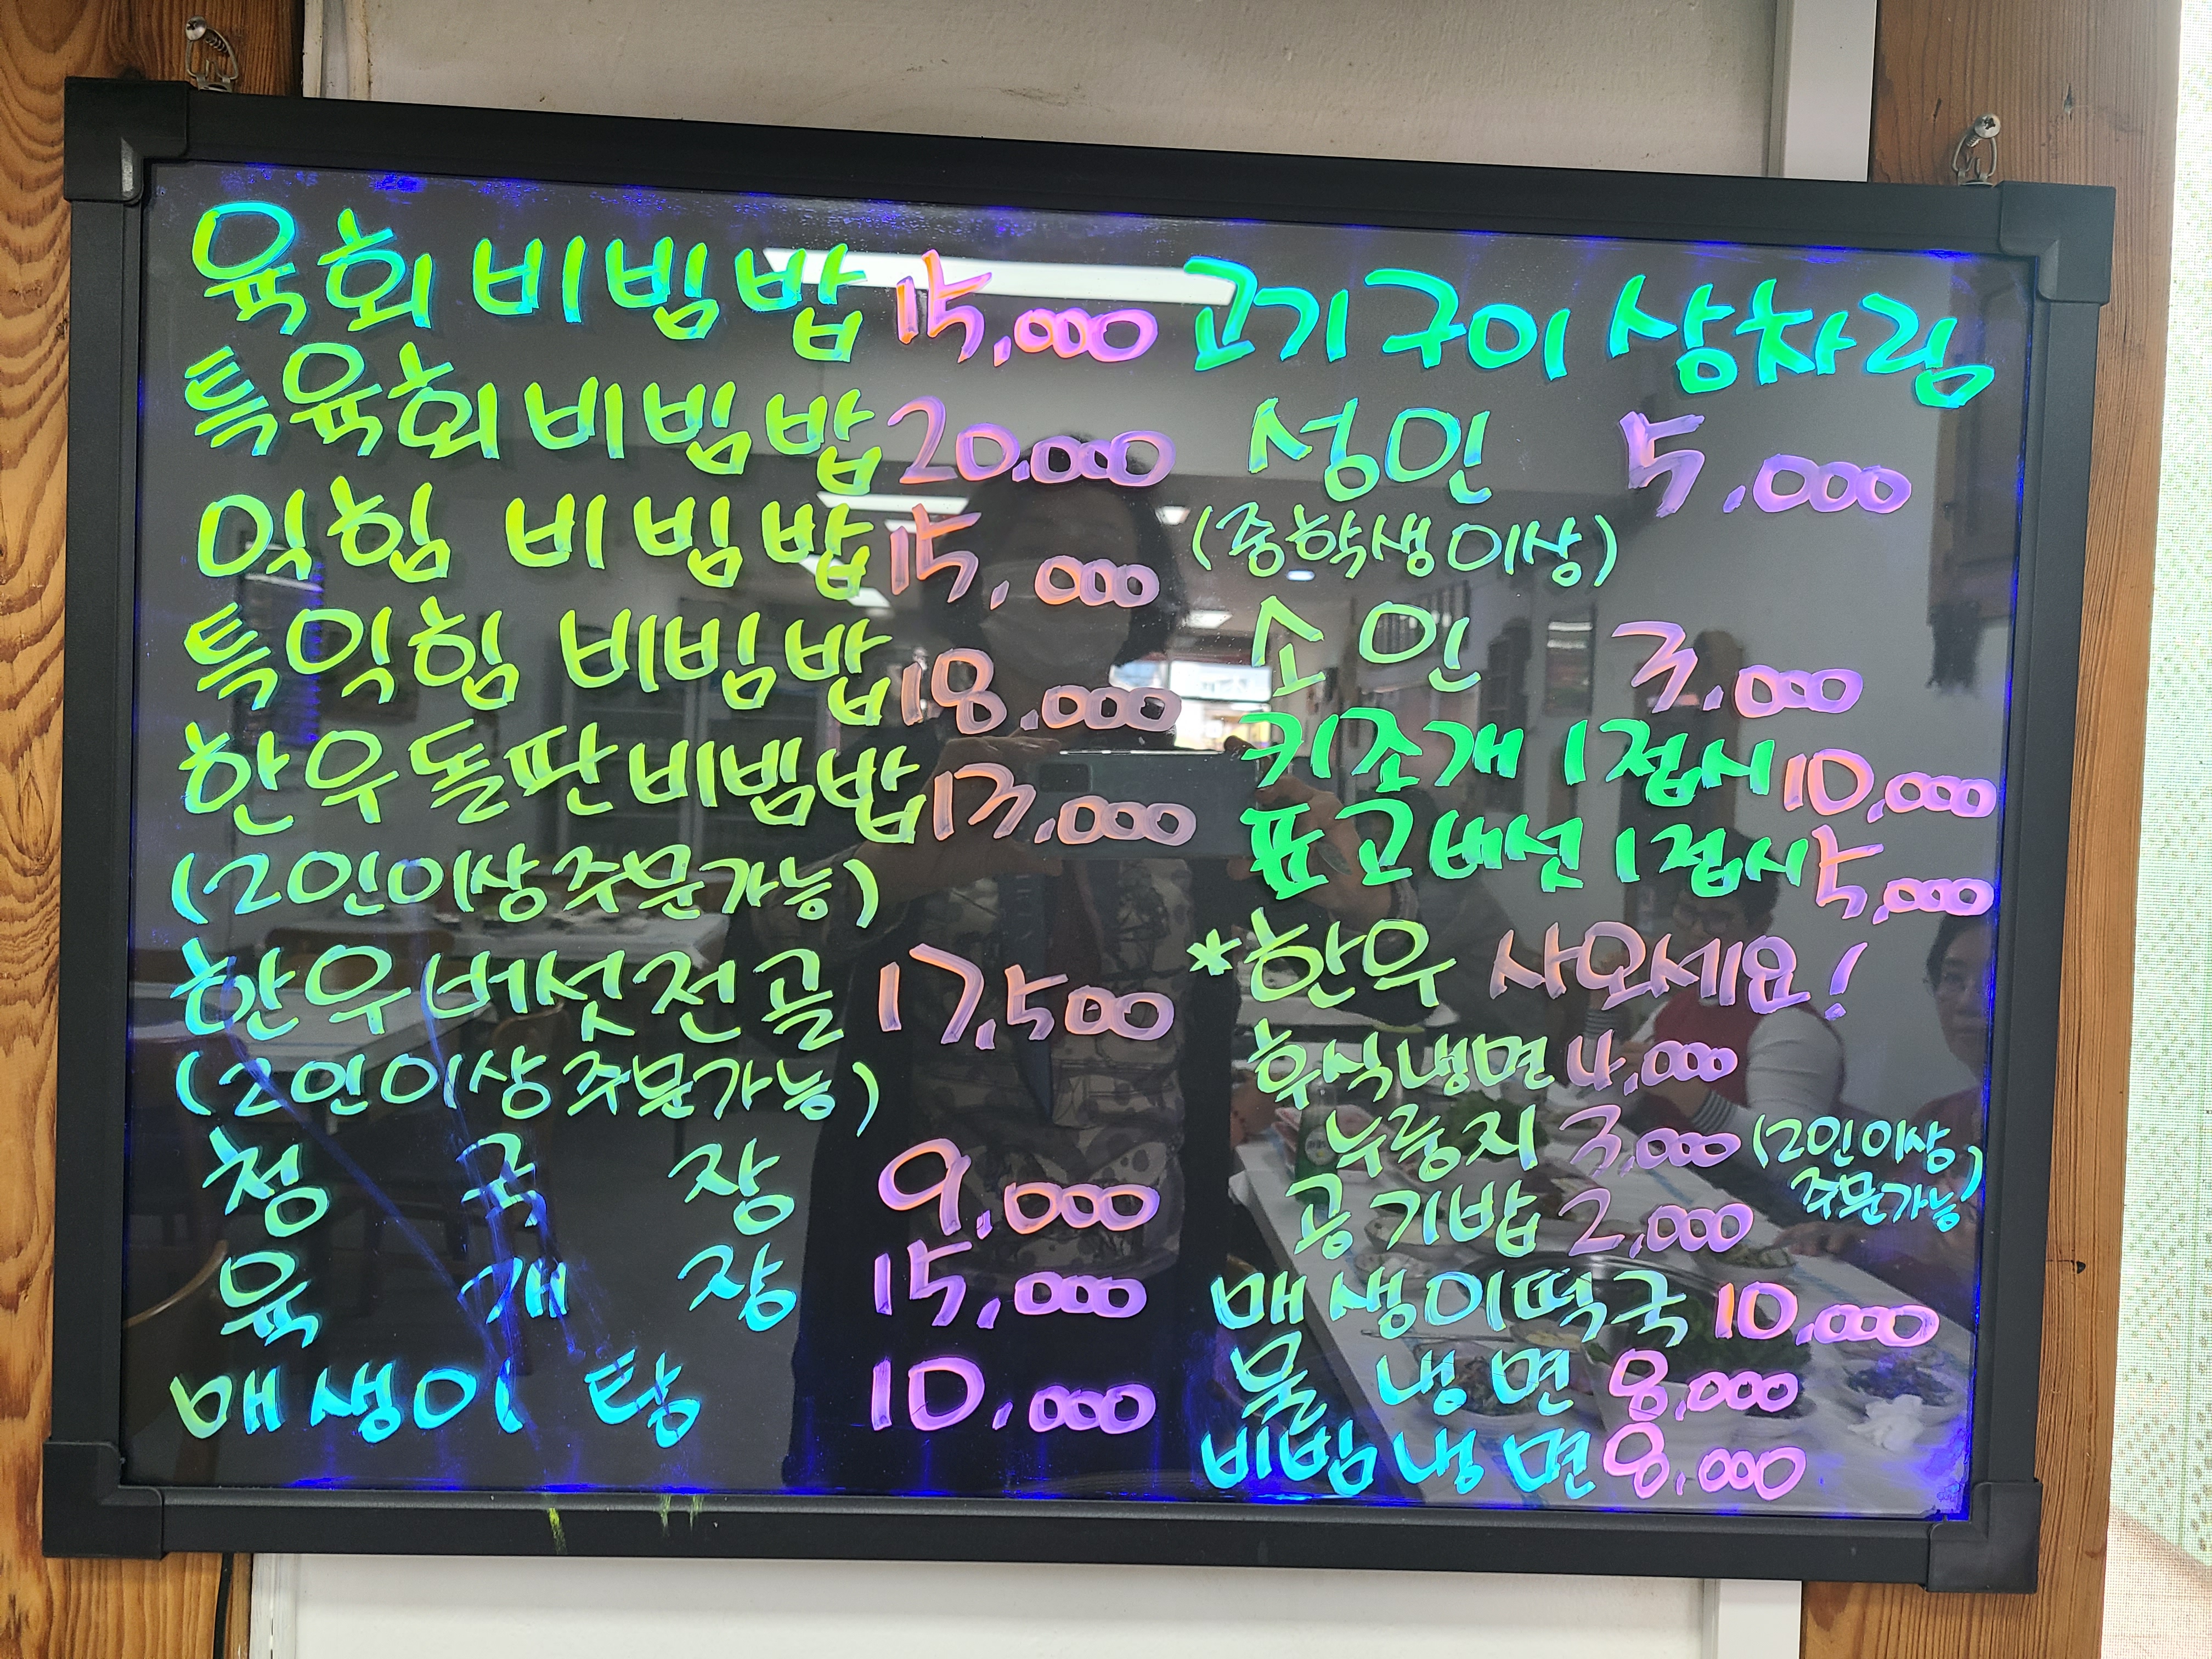 육회비빔밥 15,000
특육회비빔밥 20,000
익힘 비빔밥 15,000
특익힘 비빔밥 18,000
한우돌판비빔밥 13,000
(2인이상주문가능)
한우버섯전골 17,500
(2인이상주문가능)
청 국 장 9,000
육 개 장 15,000
매생이 탕 10,000
고기구이 상차림
성인 5,000
(중학생이상)
소인 3,000
키조개 1접시 10,000
표고버섯 1접시 5,000
*한우 사오세요!
후식냉면 4,000
누룽지 3,000 (2인이상
주문가능)
공기밥 2,000
매생이떡국 10,000
물 냉면 8,000
비빔냉면 8,000